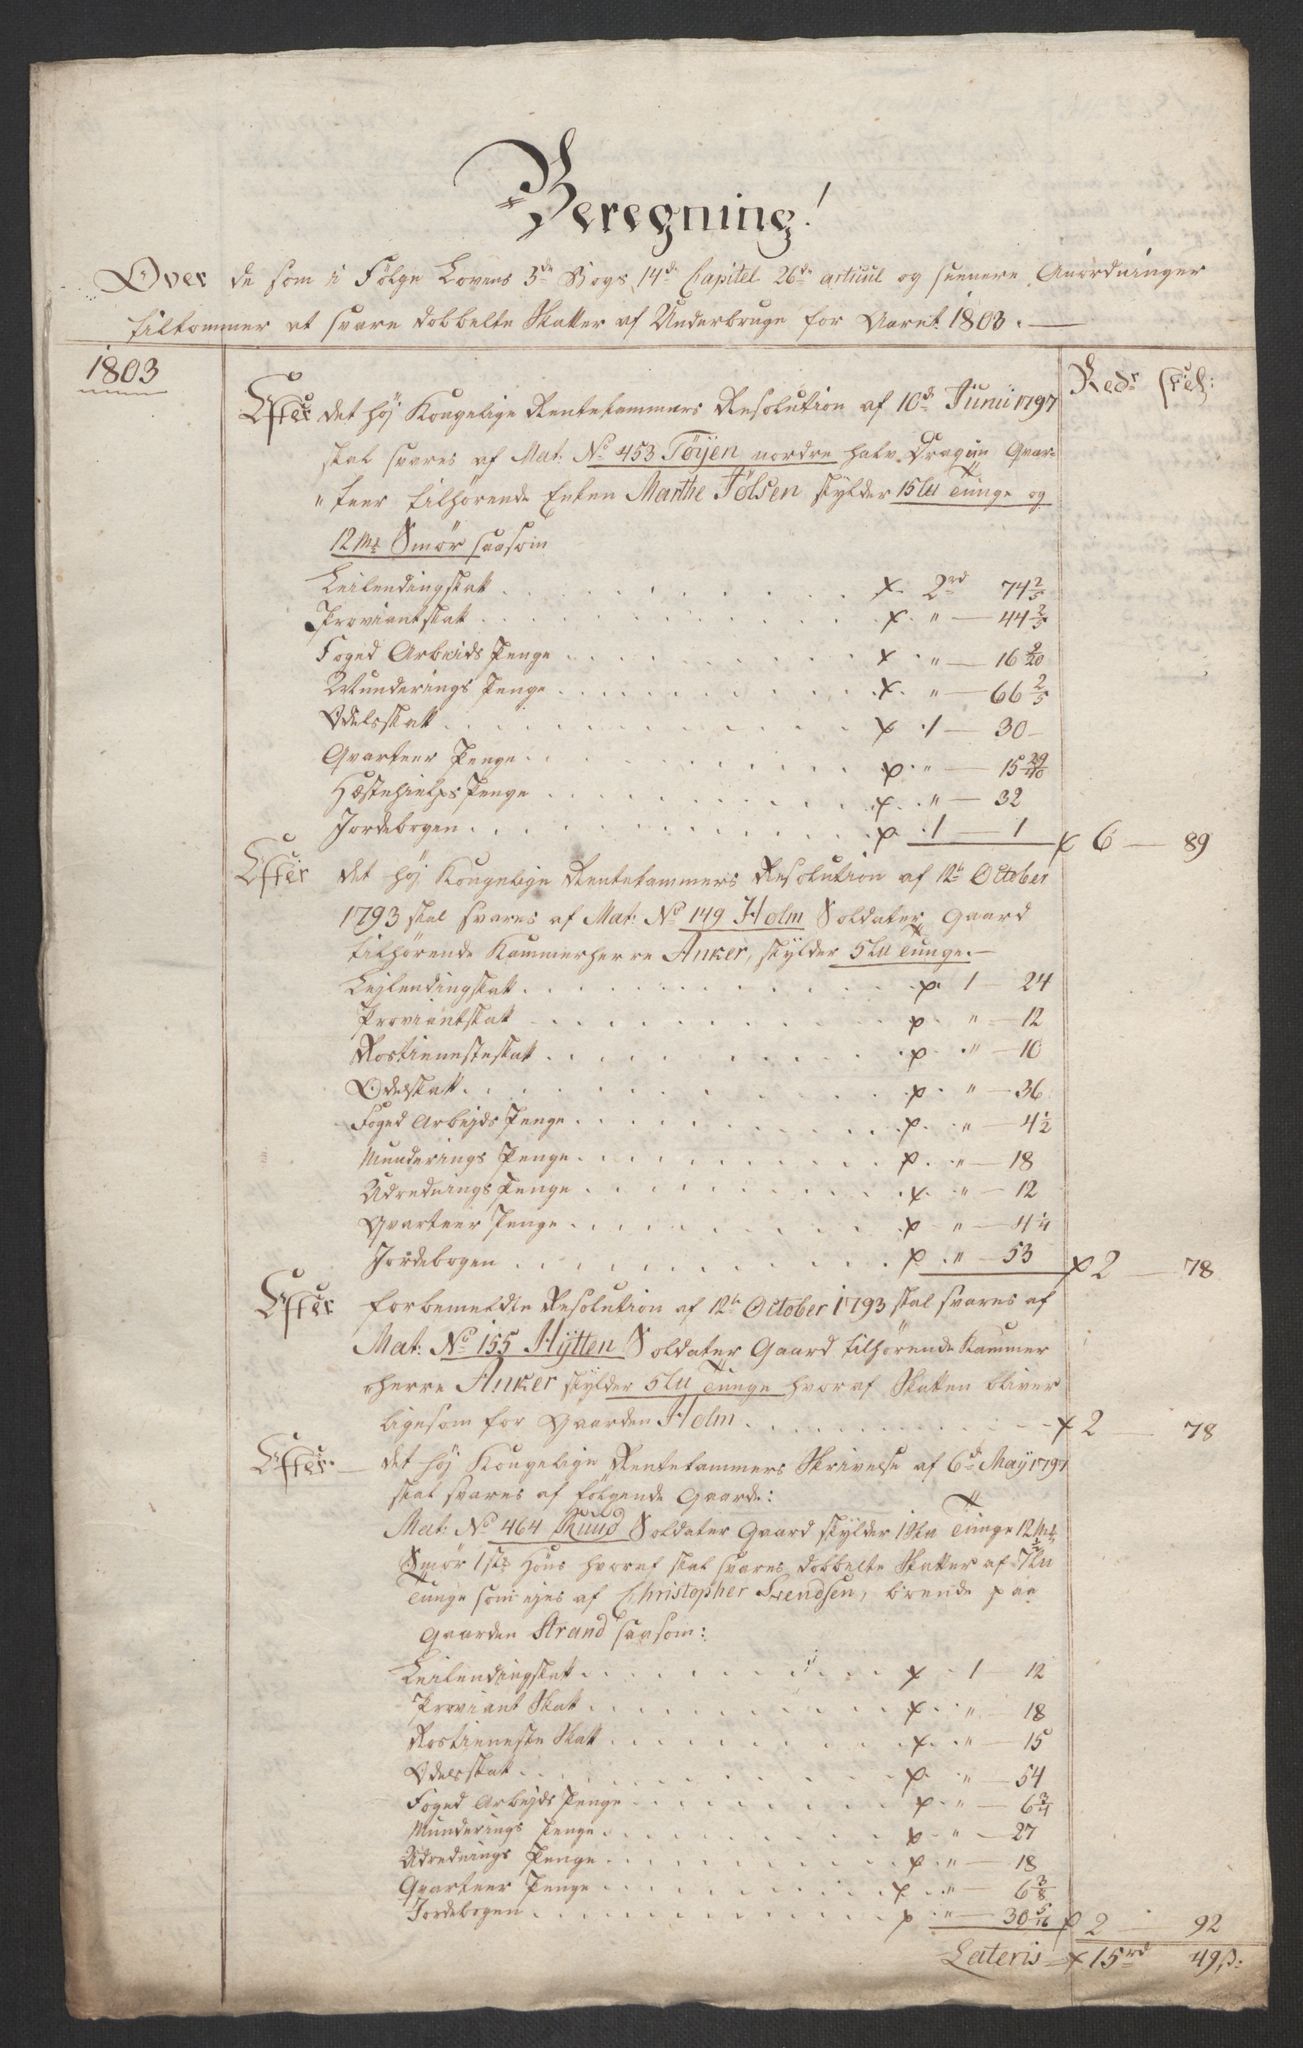 Beregning!
Over de som i Følge Lovens 3de Bogs 14de Capitel 26de articul og seenere Anordninger
tilkommer at svare dobbelte Skatter af Underbruge for Aaret 1803.
1803
Rdr skel:
Efter det høj Kongelige Rentekammers Resolution af 10de Junii 1797
skal svares af Mat: No 453 Tøÿen nordre halv Dragun Qvar-
"teer tilhørende Enken Marthe Jølsen skylder 15 Lu Tunge og
12 Mk Smør saasom
Leilendingskat x. 2rd 74 2/5
Proviantskat x. " 44 2/5
Foged Arbeids Penge x " 16 9/20
Munderings Penge x. " 66 2/5
Odelsskatt x 1 30
Qvarteer Penge x. " 15 29/40
Hæstehielps Penge x. " 32
Jordebogen x. 1 1 x 6 89
Efter det høj Kongelige Rentekammers Resolution af 12te October
1793 skal svares af Mat: No 149 Holm Soldater Gaard
tilhørende Kammerherre Anker, skylder 5 Lu Tunge.
Lejlendingskat x. 1 24
Proviantskat x. " 12
Rostienesteskat x. " 10
Odelskatt x. " 36
Foged Arbejds Penge x. " 4 1/2
Munderings Penge x. " 18
Udrednings Penge x. " 12
Qvarteer Penge x " 4 1/4
Jordebogen x " 53 x 2 78
Efter forbemeldte Resolution af 12te October 1793 skal svares af
Mat: No 155 Hÿtten Soldater Gaard tilhørende Kammer
"herre Anker skylder 5 Lu Tunge hvoraf Skatten bliver
ligesom for Gaarden Holm x 2 78
Efter det høj Kongelige Rentekammers Skrivelse af 6de May 1797
skal svares af følgende Gaarde:
Mat: No 464 Ruud Soldater Gaard skylder Lu Tunge 12 Mk
Smør 1 stk Huus hvoraf skal svares dobbelte Skatter af 7 1/2 Lu
Tunge som ejes af Christopher Svendsen, boende paa
Gaarden Strand saasom:
Leilendingskat x 1 12
Proviant Skat x. " 18
Rostieneste Skatt x. " 15
Odelsskat x. " 54
Foged Arbejds Penge x. " 6 3/4
Munderings Penge x " 27
Udrednings Penge x. " 18
Qvarteer Penge x. " 6 3/8
Jordebogen x " 30 5/16 x 2 92
Lateris x 15rd 49ß.